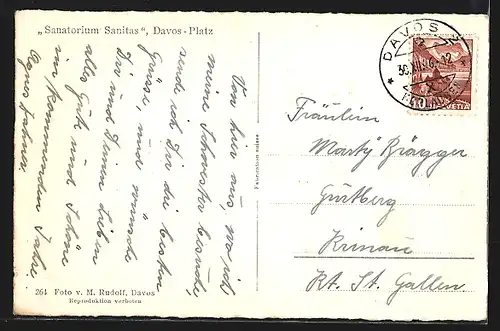 „Sanatorium Sanitas“, Davos-Platz
Von hier aus, wo ich
meine Schwester besuche,
sende ich Dir die besten
Grüsse, und wünsche
Dir und Deinen Lieben
alles Gute und Schöne
im kommenden Jahr.
Fabrication suisse
264 Foto v. M. Rudolf, Davos
Reproduktion verboten
DAVOS
HELVETIA
Fräulein
Marty Brägger
Gurtberg
Krinau
Kt. St. Gallen